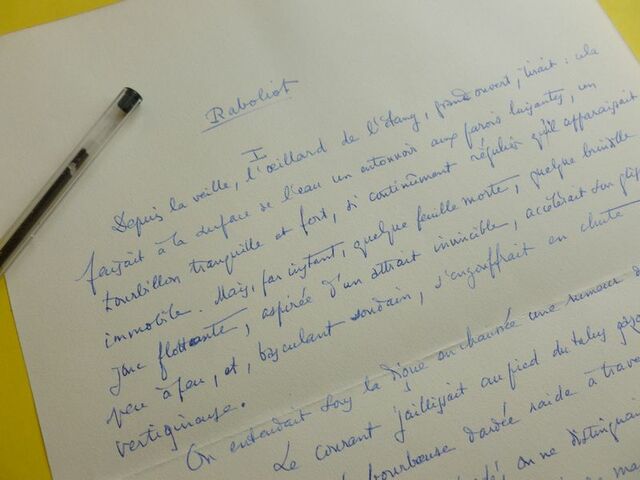 Raboliot
I
Depuis la veille, l'œillard de l'étang, grand ouvert, tirait : cela
faisait à la surface de l'eau un entonnoir aux parois luisantes, un
tourbillon tranquille et fort, si continûment régulier qu'il apparaissait
immobile. Mais, par instant, quelque feuille morte, quelque brindille
jonc flottante, aspirée d'un attrait invincible, accélérait son glis
peu à peu, et, basculant soudain, s'engouffrait en chute
vertigineuse.
On entendait sous la digue en chaussée une rumeur d
Le courant jaillissait au pied du talus gazo
bourbeuse dardée raide à trave
on ne distinguai